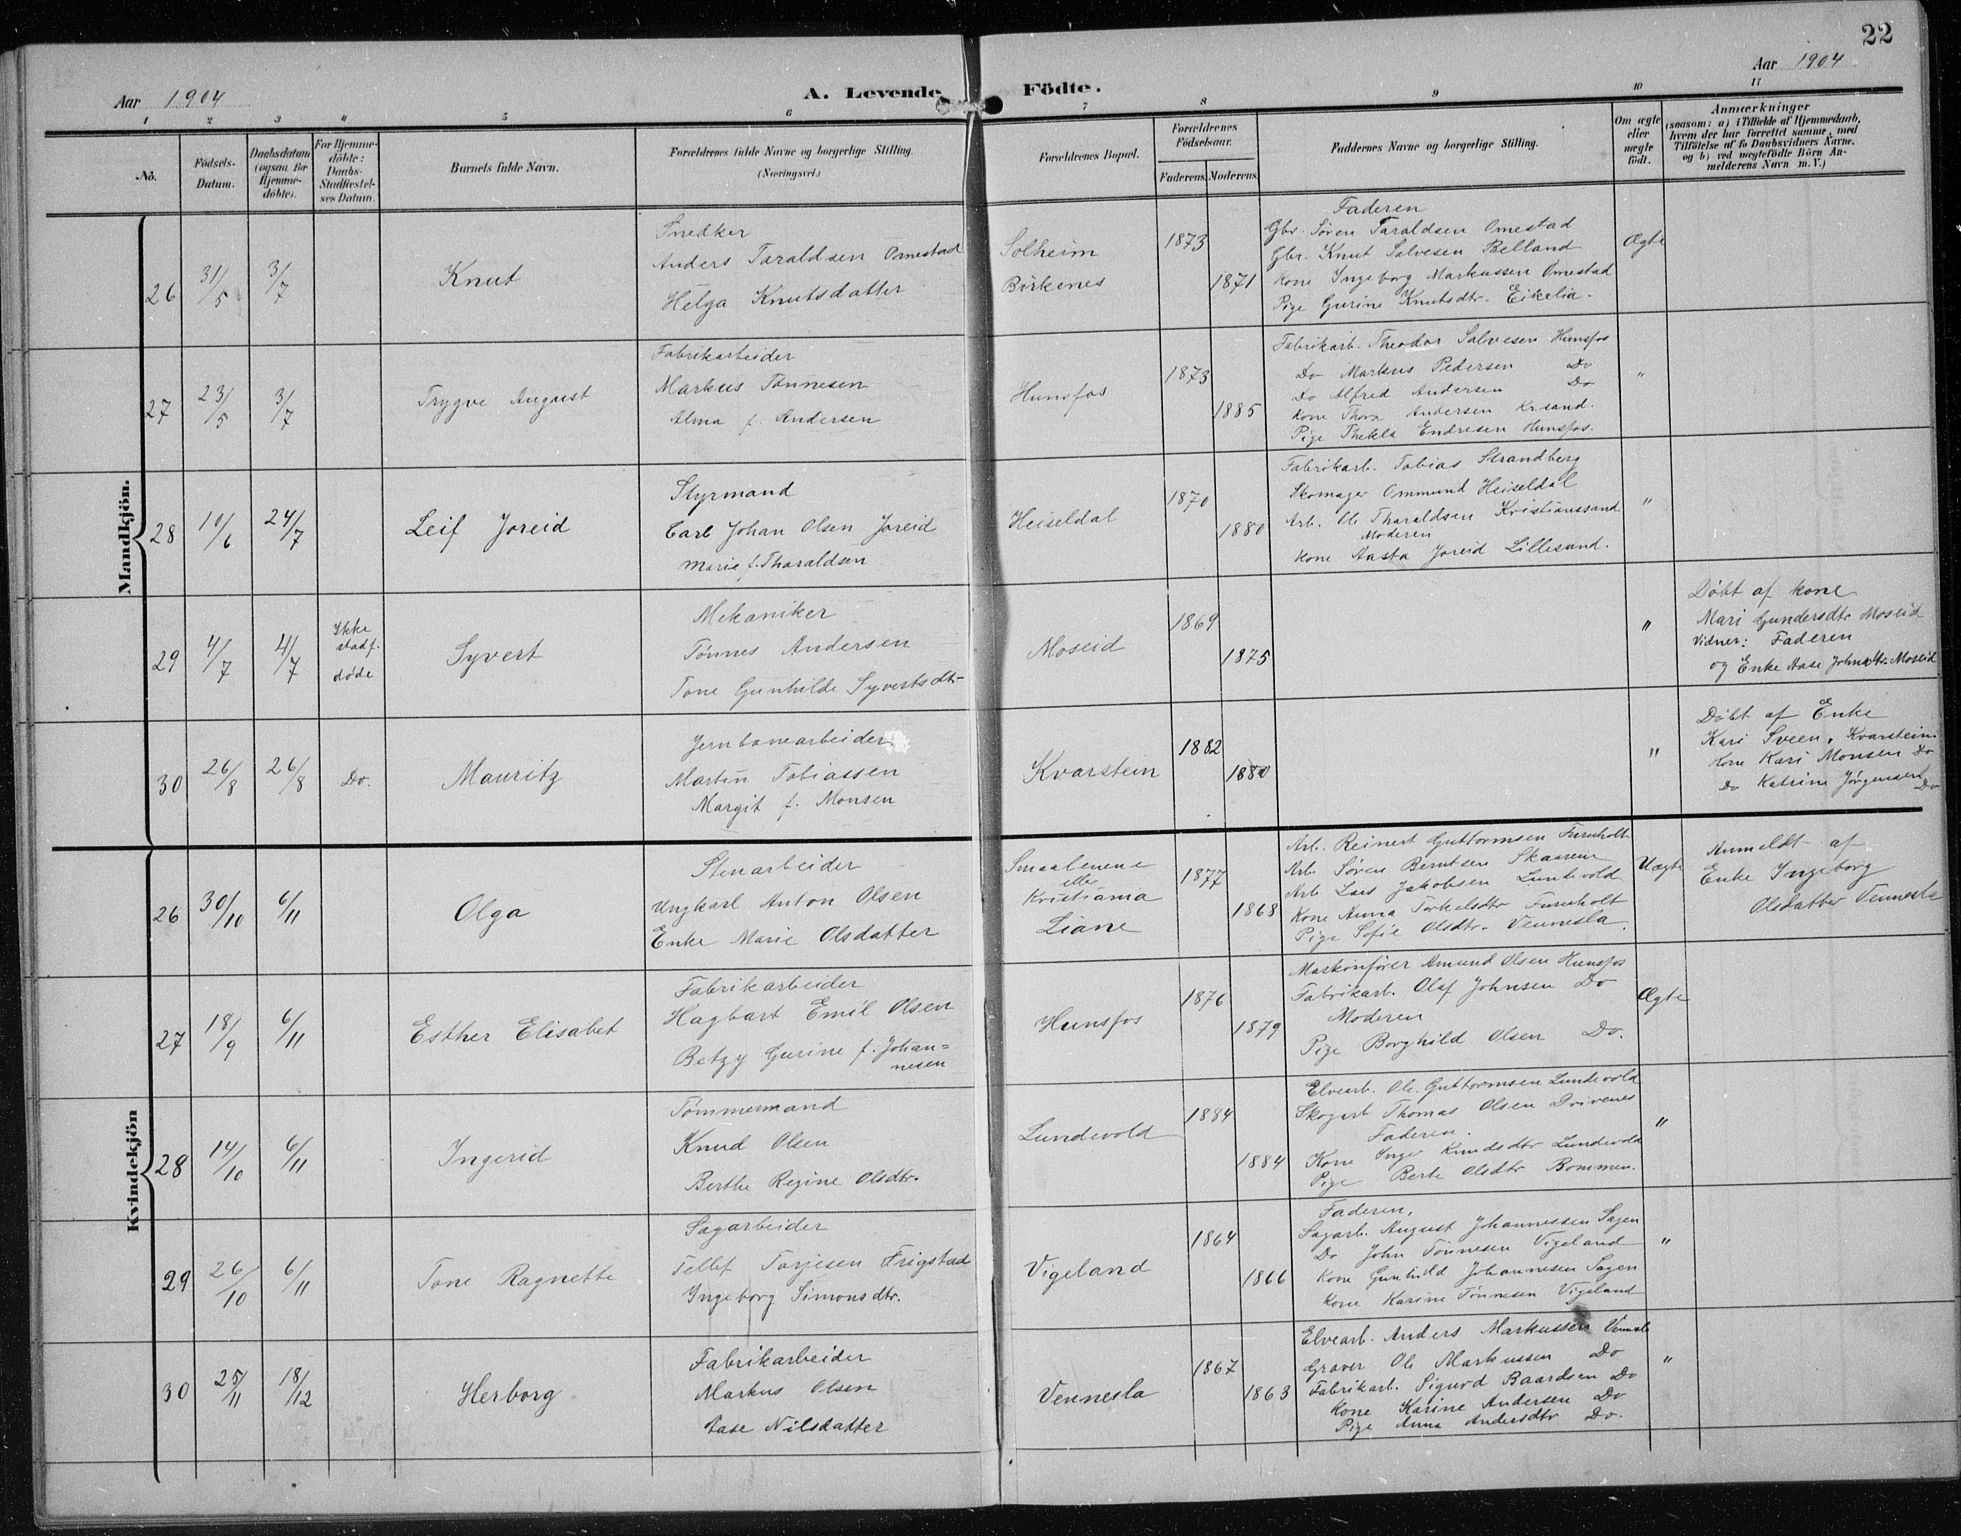 22
Aar 1904
A. Levende Födte.
Aar 1904
1 2 3 4 5 6 7 8 9 10 11
No.
Födsels-Datum.
Daabsdatum (ogsaa for Hjemme-döbte).
For Hjemme-döbte: Daabs-Stadfæstel-ses Datum.
Barnets fulde Navn.
Forældrenes fulde Navne og borgerlige Stilling.
(Næringsvei.)
Forældrenes Bopæl.
Forældrenes Födselsaar.
Faderens. Moderens.
Faddernes Navne og borgerlige Stilling.
Om ægte eller uægte födt.
Anmærkninger
(saasom: a) i Tilfælde af Hjemmedaab,
hvem der har forrettet samme, med
Tilföielse af to Daabsvidners Navne,
og b) ved uægtefödte Börn An-
melderens Navn m. V.)
Mandkjön.
26 31/5 3/7 Knut
Snedker
Anders Taraldsen Omestad
Helga Knutsdatter
Solheim
Birkenes
1873
1871
Faderen
Gbr. Søren Taraldsen Omestad
Gbr. Knut Salvesen Belland
Kone Ingeborg Markussen Omestad
Pige Gurine Knutsdtr. Eikelia.
Ægte
27 23/5 3/7 Trygve August
Fabrikarbeider
Markus Tønnesen
Alma f. Andersen
Hunsfos
1873
1885
Fabrikarb. Theodor Salvesen Hunsfos
Do Markus Pedersen Do
Do Alfred Andersen Do
Kone Thora Andersen Krsand.
Pige Thekla Endresen Hunsfos.
"
28 10/6 24/7 Leif Joreid
Styrmand
Carl Johan Olsen Joreid
Marie f. Tharaldsen
Heiseldal
1870
1880
Fabrikarb. Tobias Strandberg
Skomager Ommund Heiseldal
Arb. Ole Tharaldsen Kristianssand
Moderen
Kone Aasta Joreid Lillesand.
"
29 4/7 4/7
Ikke
stadf.
døde
Syvert
Mekaniker
Tønnes Andersen
Tone Gunhilde Syvertsdtr
Moseid
1869
1875
"
Døbt af kone
Mari Gundersdtr Moseid
Vidner: Faderen
og Enke Aase Johnsdtr. Moseid
30 26/8 26/8 Do. Mauritz
Jernbanearbeider
Martin Tobiassen
Margit f. Monsen
Kvarstein
1882
1880
"
Døbt af Enke
Kari Sveen, Kvarstein
Kone Kari Monsen Do
Do Katrine Jørgensen
Do
Kvindekjön
26 30/10 6/11 Olga
Stenarbeider
Ungkarl Anton Olsen
Enke Marie Olsdatter
Smaalenene
eller
Kristiania
Liane
1877
1868
Arb. Reinert Guttormsen Furuholt
Arb. Søren Berntsen Skaaren
Arb Lars Jakobsen Lundevold
Kone Anna Torkelsdtr Furuholt
Pige Sofie Olsdtr. Vennesla.
Uægte
Anmeldt af
Enke Ingeborg
Olsdatter Vennesla
27 18/9 6/11 Esther Elisabet
Fabrikarbeider
Hagbart Emil Olsen
Betzy Gurine f. Johan=
nesen
Hunsfos
1876
1879
Amund Olsen Hunsfos
Fabrikarb. Olaf Johnsen Do
Moderen
Pige Borghild Olsen Do.
Ægte
28 14/10 6/11 Ingerid
Tømmermand
Knud Olsen
Berthe Regine Olsdtr.
Lundevold
1884
1884
Elvearb. Ole Guttormsen Lundevold
Skogarb Thomas Olsen Drivenes
Faderen.
Kone Inger Knudsdtr Lundevold
Pige Berte Olsdtr Bommen.
"
29 26/10 6/11 Tone Ragnette
Sagarbeider
Tellef Torjesen Frigstad
Ingeborg Simonsdtr.
Vigeland
1864
1866
Faderen,
Sagarb. August Johannessen Sagen
Do John Tønnesen Vigeland
Kone Gunhild Johannesen Sagen
Kone Karine Tønnesen Vigeland
"
30 25/11 18/12 Herborg
Fabrikarbeider
Markus Olsen
Aase Nilsdatter
Vennesla
1867
1863
Elvearb. Anders Markussen Vennesla
Graver Ole Markussen Do
Fabrikarb. Sigurd Baardsen Do
Kone Karine Andersen Do
Pige Anna Andersdtr Do.
"